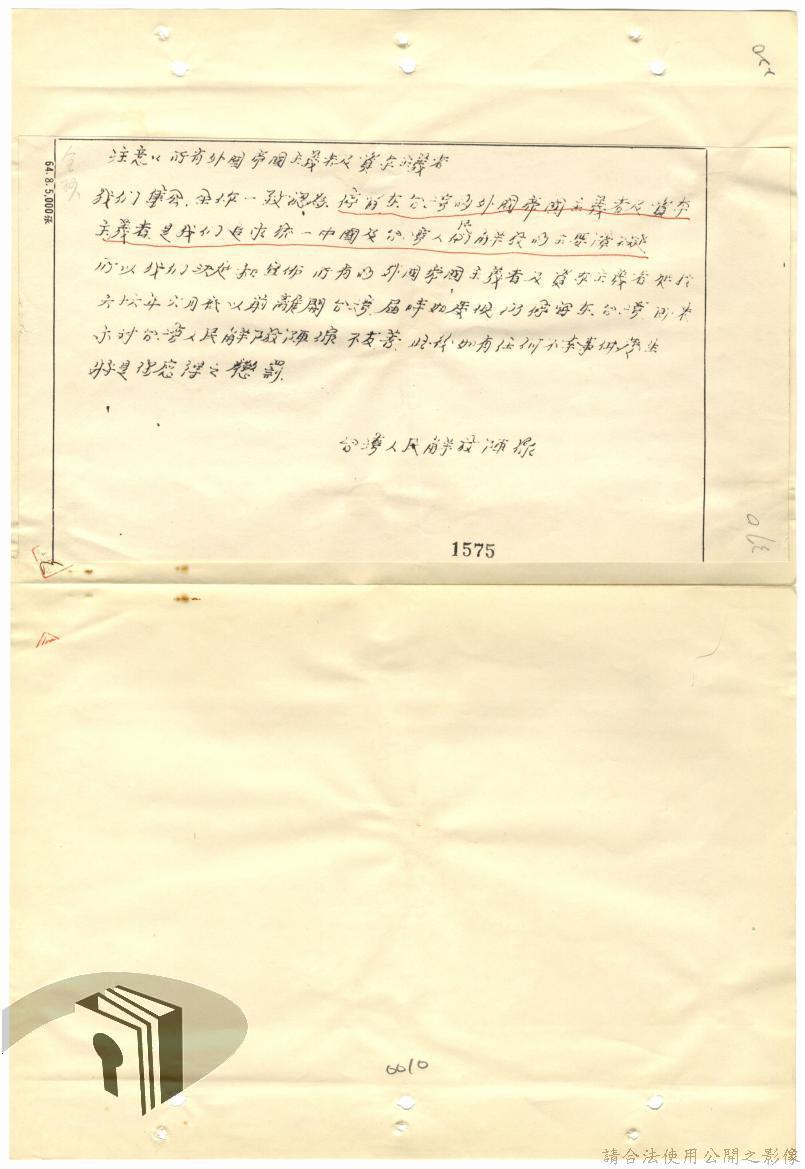 注意:所有外國帝國主義者及資本主義者
我們 一致認為,停留在台灣的外國帝國主義者及資本
主義者是我們追求統一中國及台灣人民解放的主要障礙
所以我們決定 所有的外國帝國主義者及資本主義者
六六年六月底以前離開台灣,屆時如發現仍停留在台灣,即表
示對台灣人民解放陣線不友善,此後如有任何不幸事件發生
將是你應得之懲罰.
台灣人民解放陣線
1575
64.8.5,000張
0010
請合法使用公開之影像